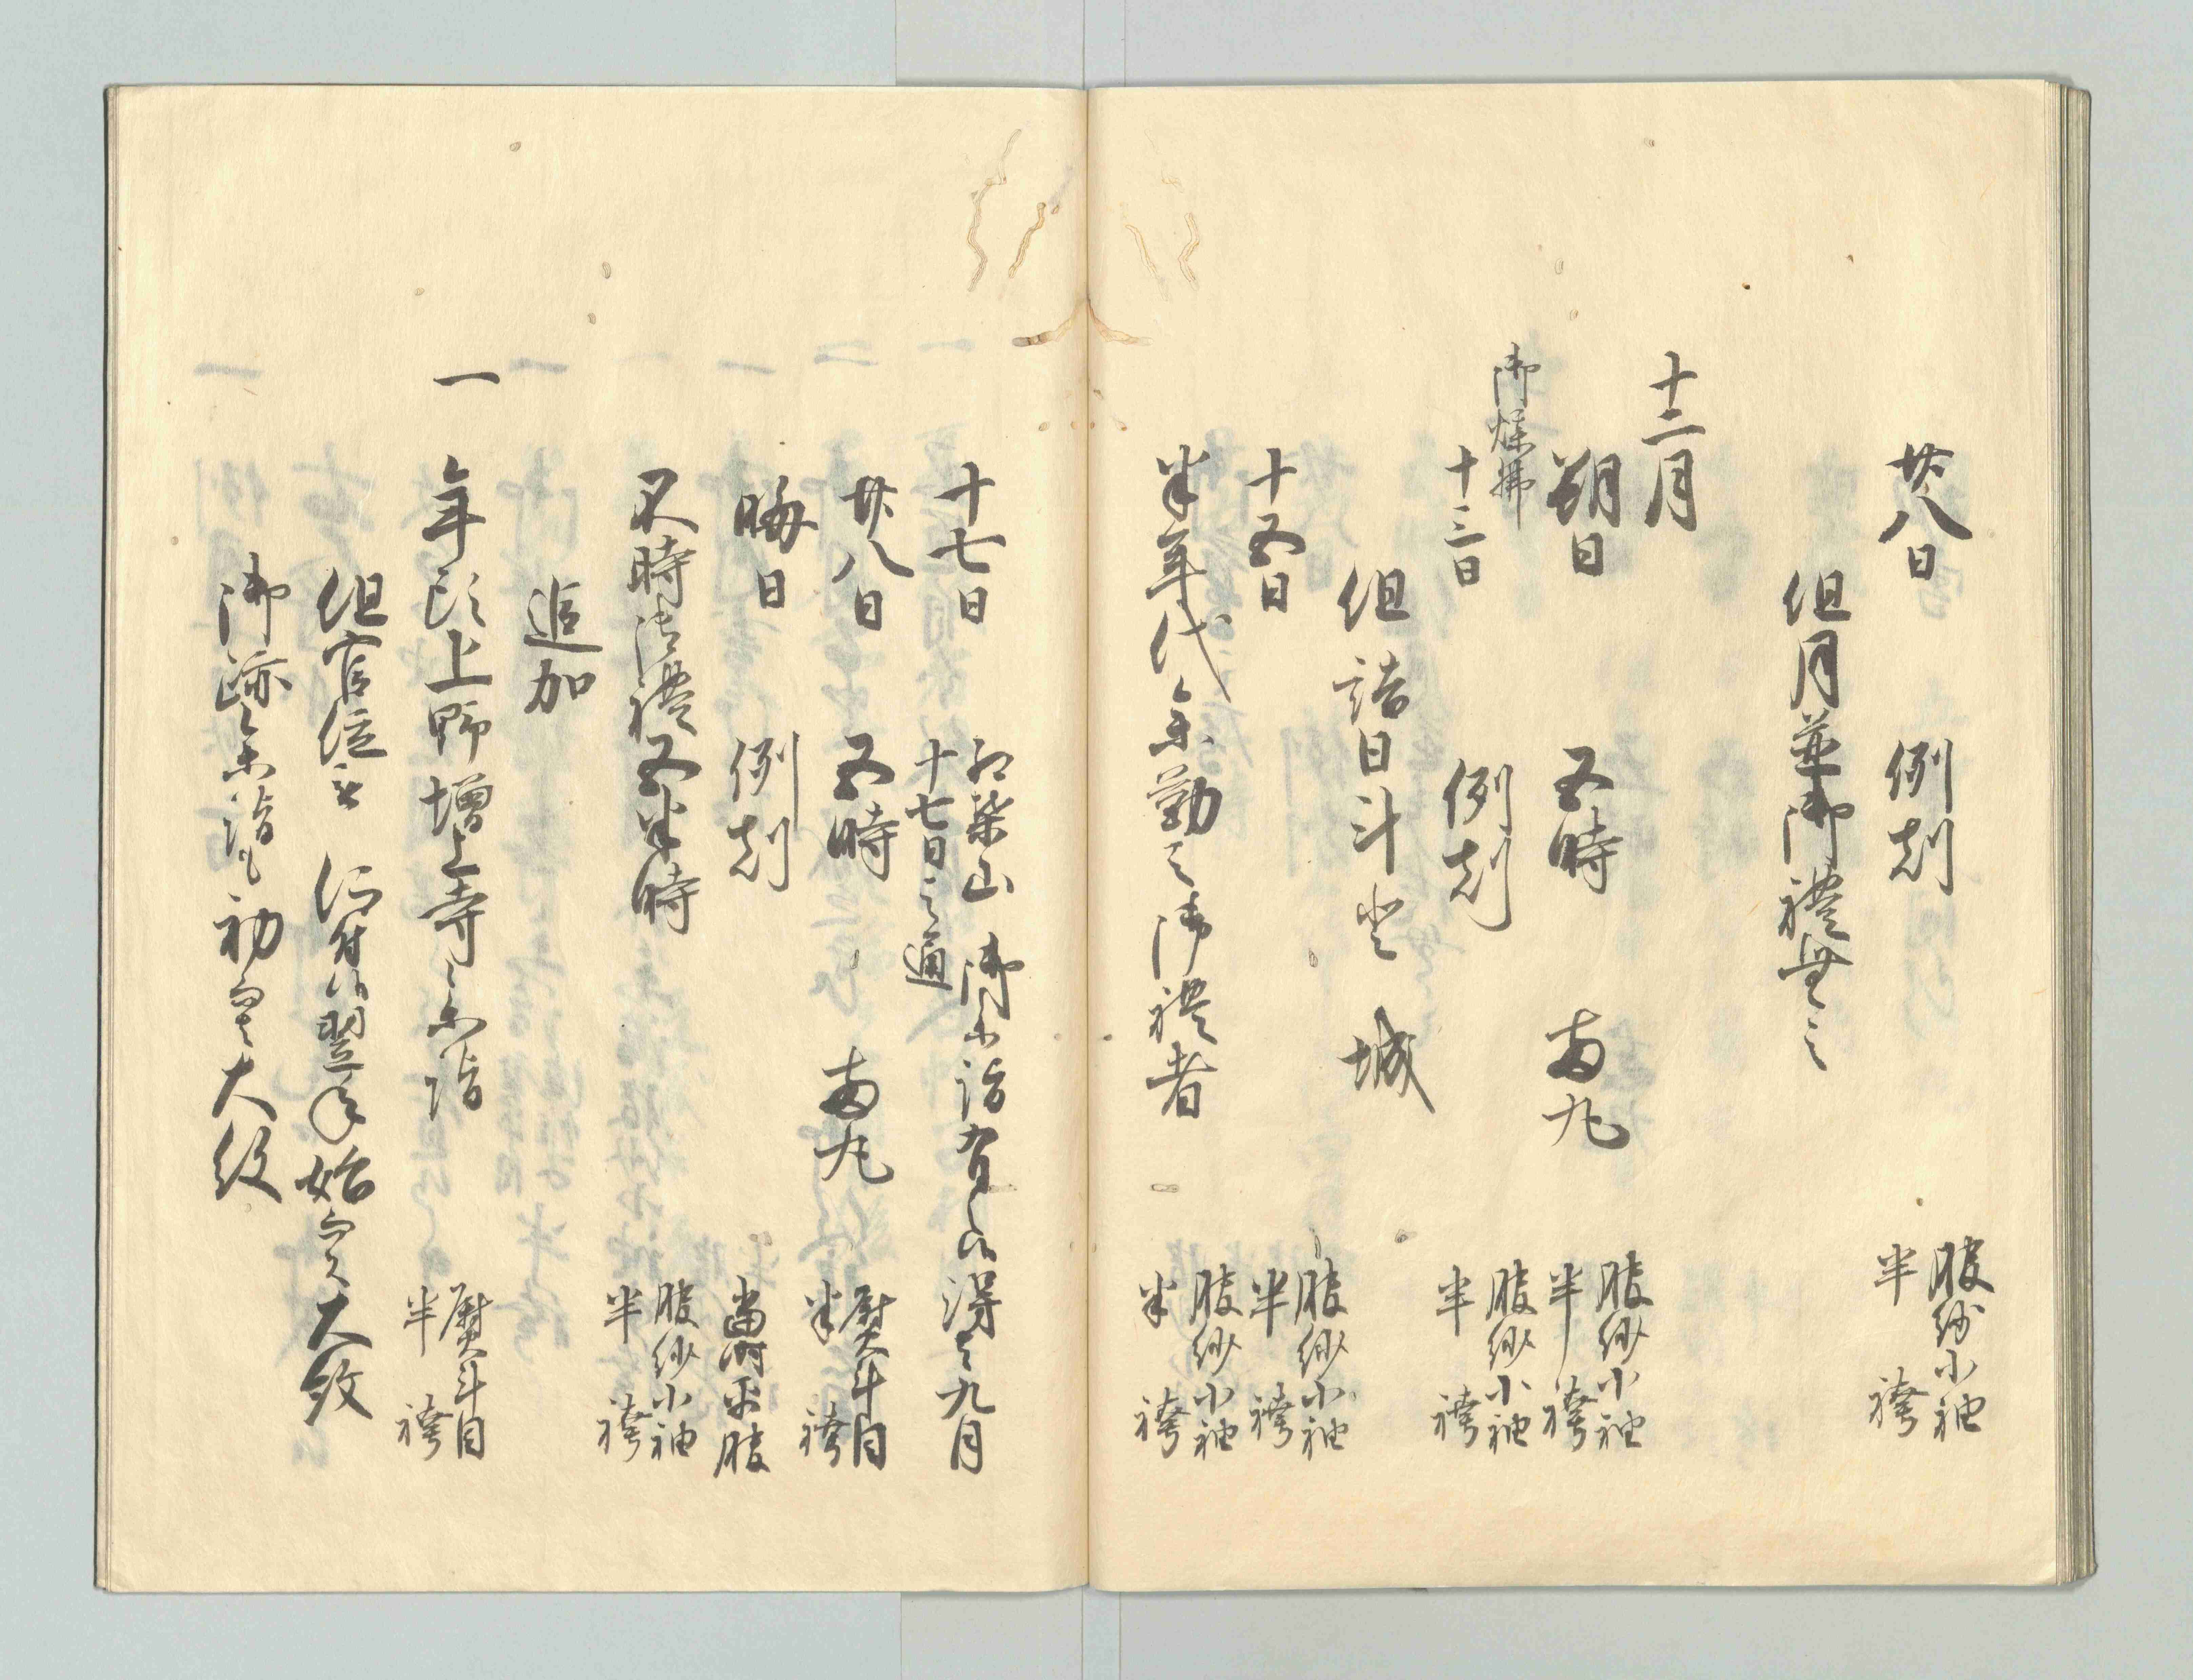 廿八日　例刻　服紗小袖
半　袴
但月並御禮無之
十二月
朔日　五時　両丸　服紗小袖
半　袴
御煤拂
十三日　例刻　服紗小袖
半　袴
但詰日斗登　城
十五日　服紗小袖
半　袴
半年代参勤之御禮者　服紗小袖
半　袴
十七日　紅葉山　御参詣有之候得者九月
十七日之通
廿八日　五時　両丸　熨斗目
半　袴
晦日　例刻　常服
不時御禮五半時　服紗小袖
半　袴
追加
一　年頭上野増上寺参詣　熨斗目
半　袴
但官位被　仰付候翌年始而者大紋
御跡参詣も初而者大紋